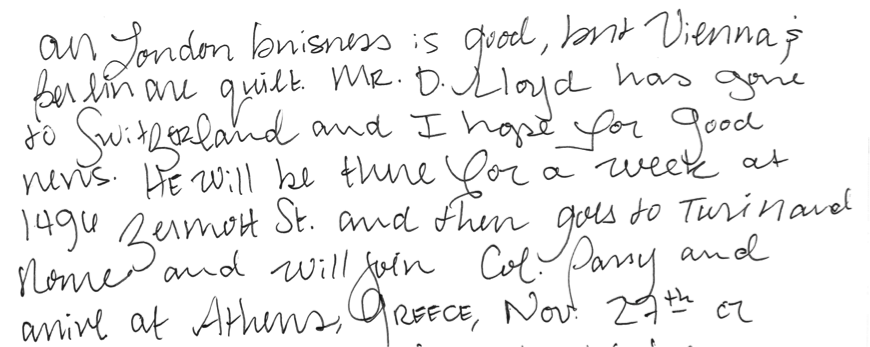 our London buisness is good, but Vienna &
Berlin are quiet. MR. D. Lloyd has gone
to Switzerland and I hope for good
news. HE will be there for a week at
1496 Zermott St. and then goes to Turin and
Rome and will join Col. Parry and
arrive at Athens, GREECE, Nov. 27th or